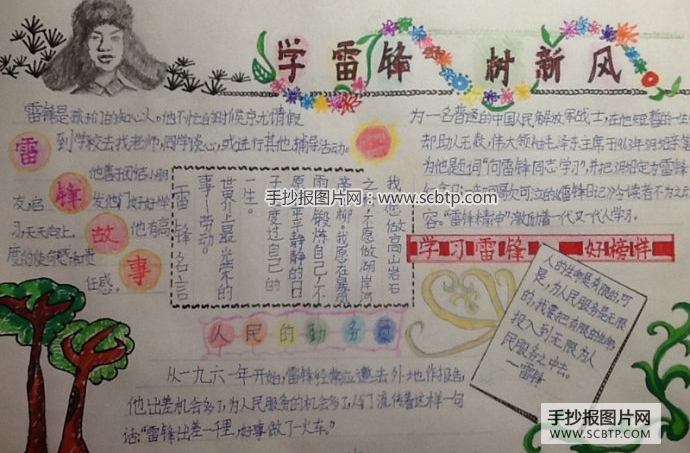 学雷锋 树新风
雷锋是我们的知心人。他不忙的时候
到学校去找老师,同学谈心,或进行其他辅导活动。
雷锋故事
他善于团结小朋
友,启发他们好好学
习,天天向上。他有高
度的使命感和责
任感。
雷锋名言
世界上最光荣的
事——劳动。
我愿做高山岩石
之松,不愿做湖岸河
旁之柳。我愿在暴风
雨中锻炼自己,不
愿在平平静静的日
子里度过自己的
一生。
为一名普通的中国人民解放军战士,在他短暂的一生
却助人无数,伟大领袖毛泽东主席于1963年
为他题词“向雷锋同志学习”,并把3月5日定为雷锋
纪念日,《雷锋日记》令读者不为之动
容。“雷锋精神”激励着一代又一代人学习。
学习雷锋 好榜样
人的生命是有限的,可
是,为人民服务是无限
的,我要把有限的生命
投入到无限为人
民服务之中去。
—雷锋
人民的勤务员
从一九六一年开始,雷锋经常应邀去外地作报告,
他出差机会多了,为人民服务的机会多了,人们流传着这样一句
话:“雷锋出差一千里,好事做了一火车。”
手抄报图片网
www.scbtp.com
手抄报图片网
WWW.SCBTP.COM